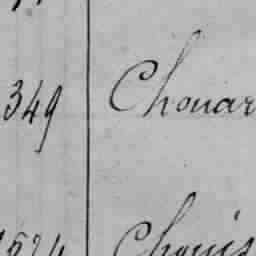 349 Chouar
1524 Chouis